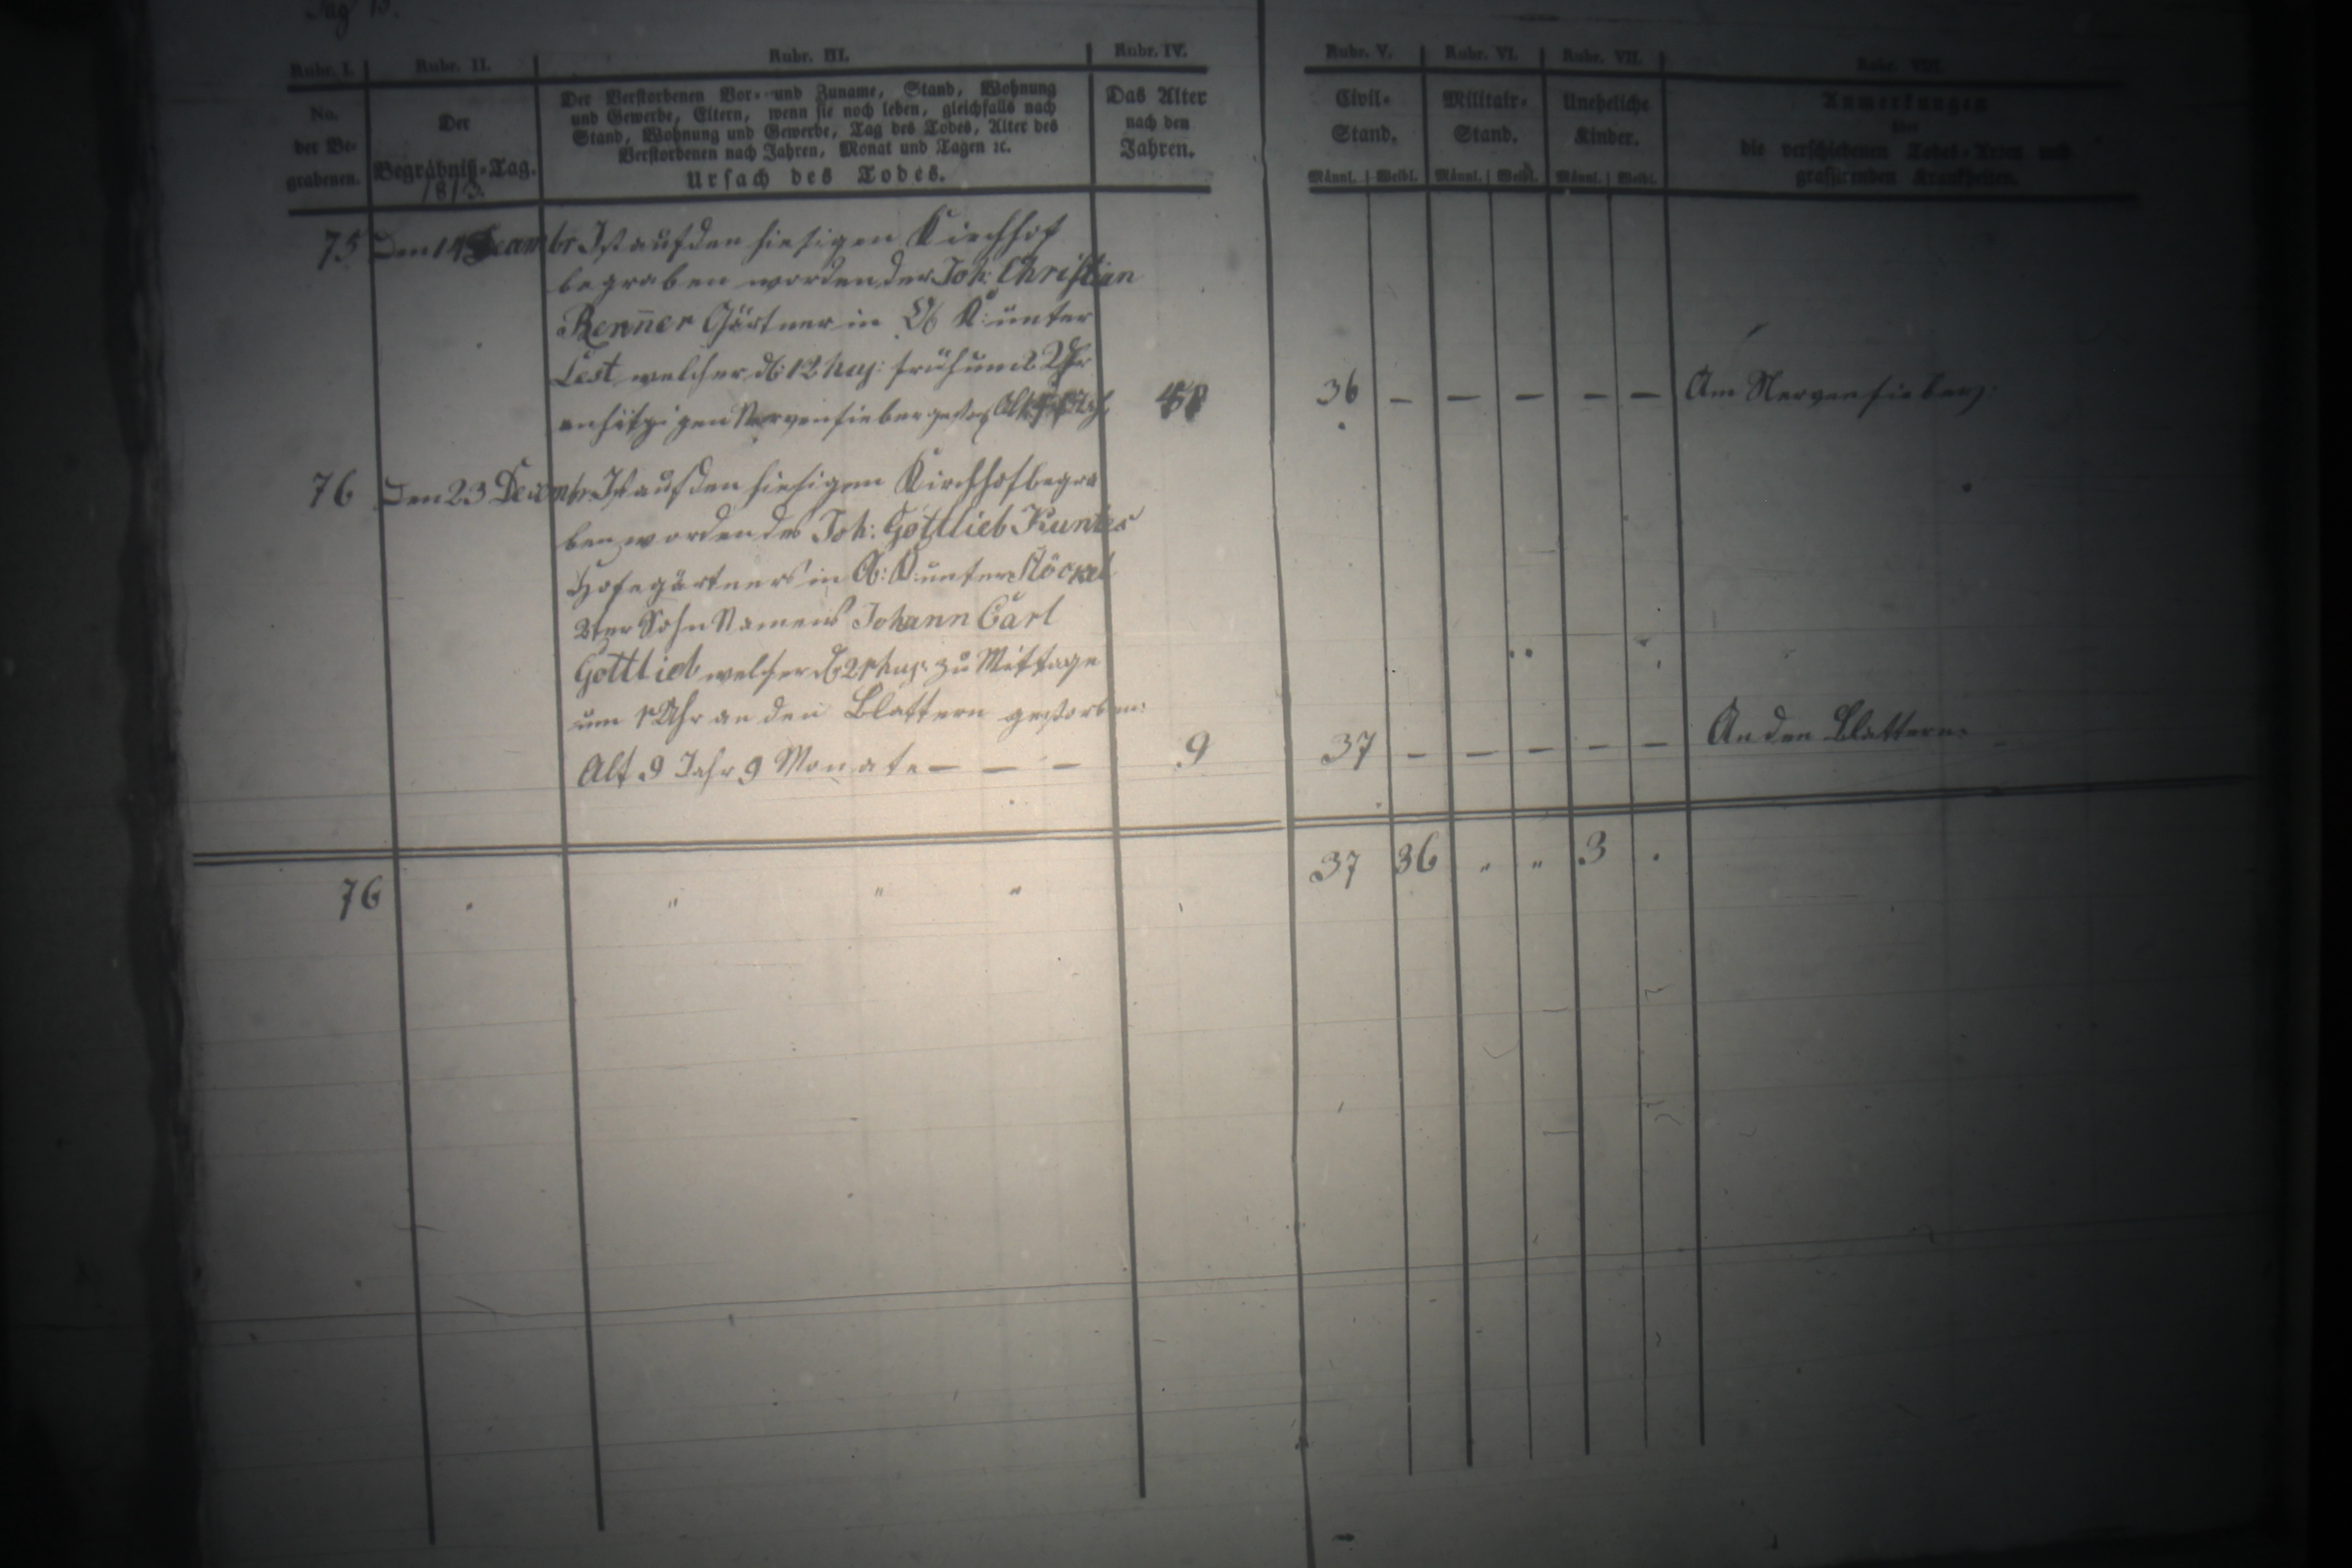 Pag 13.
Rubr. I. Rubr. II. Rubr. III. Rubr. IV. Rubr. V. Rubr. VI. Rubr. VII. Rubr. VIII.
No.
der Be-
grabenen.
Der
Begräbniß-Tag.
1813.
Der Verstorbenen Vor- und Zuname, Stand, Wohnung
und Gewerbe, Eltern, wenn sie noch leben, gleichfalls nach
Stand, Wohnung und Gewerbe, Tag des Todes, Alter des
Verstorbenen nach Jahren, Monat und Tagen ꝛc.
Ursach des Todes.
Das Alter
nach den
Jahren.
Civil-
Stand.
Männl. Weibl.
Militair-
Stand.
Männl. Weibl.
Uneheliche
Kinder.
Männl. Weibl.
Anmerkungen
über
die verschiedenen Todes-Arten und
grassirenden Krankheiten.
75 Den 14 Decembr Ist auf den hiesigen Kirchhof
begraben worden der Joh: Christian
Renner Gärtner in K: unter
Lest welcher d: 12 huj: früh um 2 Uhr
an hitzigen Nervenfieber gestorb Alt 36 — — — — — Am Nervenfieber
76 Den 23 Decembr. Ist auf den hiesigen Kirchhof begra
ben worden des Joh: Gottlieb Kuntes
Hofegärtners in O: K: unter Stöckel
2ter Sohn Namens Johann Carl
Gottlieb welcher d 21 huj: zu Mittage
um 1 Uhr an den Blattern gestorben:
Alt 9 Jahr 9 Monate — — — 9 37 — — — — — An den Blattern
76 " " " 37 36 " " 3 .